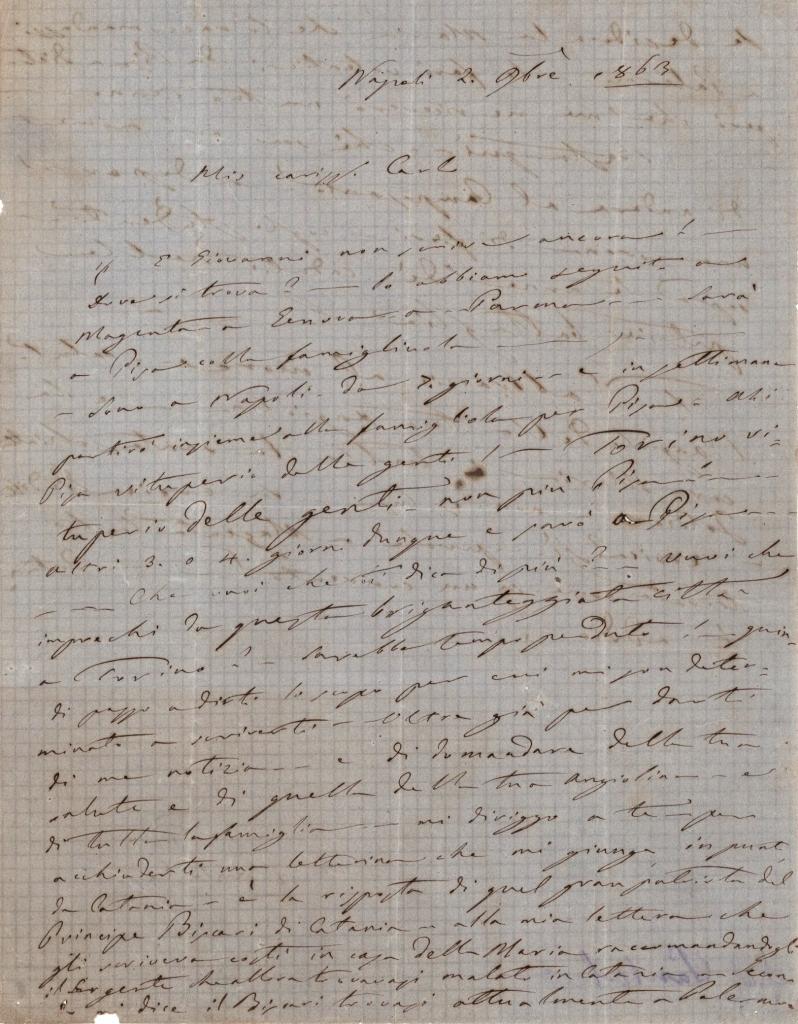 Napoli 2. 9bre 1863
Mio cariss. Carlo
E Giovanni non scrive ancora! —
Dove si trova? — lo abbiamo seguito a
Magenta — a Genova — a Parma — sarà
a Pisa colla famigliuola —
— Sono a Napoli da 7. giorni — e in settimana
partirò insieme alla famigliola per Pisa — Ahi
Pisa vituperio delle genti! — Torino vi-
tuperio delle genti — non più Pisa! —
altri 3. o 4. giorni dunque e sarò a Pisa —
— Che vuoi che ti dica di più? — vuoi che
imprechi da questa briganteggiata città
a Torino? — Sarebbe tempo perduto! — quin-
di passo a dirti lo scopo per cui mi son deter-
minato a scriverti — Oltre già per darti
di me notizia — e di domandare della tua
salute e di quella della tua Angiolina — e
di tutta la famiglia — mi diriggo a te per
acchiuderti una letterina che mi giunge
da Catania — è la risposta di quel gran patriota del
Principe Biscari di Catania — alla mia lettera che
gli scriveva costì in casa della Maria raccomandandogli
il Sergente che allora trovavasi malato in Catania —
mi dice il Biscari trovasi attualmente a Palermo